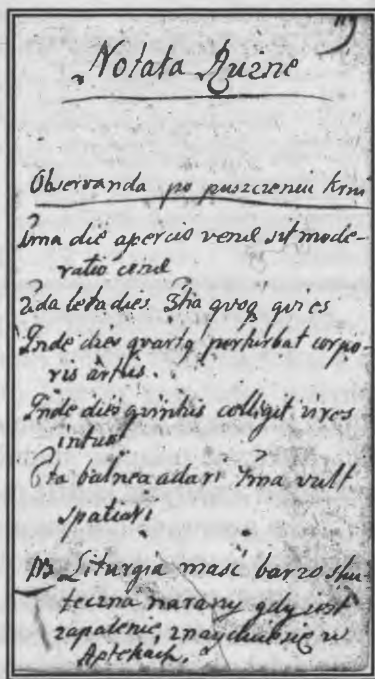 119
Notata Ruzne
Observanda po puszczeniu krwi
1ma die apercio venæ sit mode-
ratio cenæ
2da leta dies 3tia quoq quies
Inde dies quarta perturbat corpo-
ris artus.
Inde dies quintus colligit vires
intus
6ta balnea adari 7ma vult
spatiari
NB Liturgia maść barzo sku-
teczna na rany gdy iest
zapalenie, znayduie się w
Aptekach.